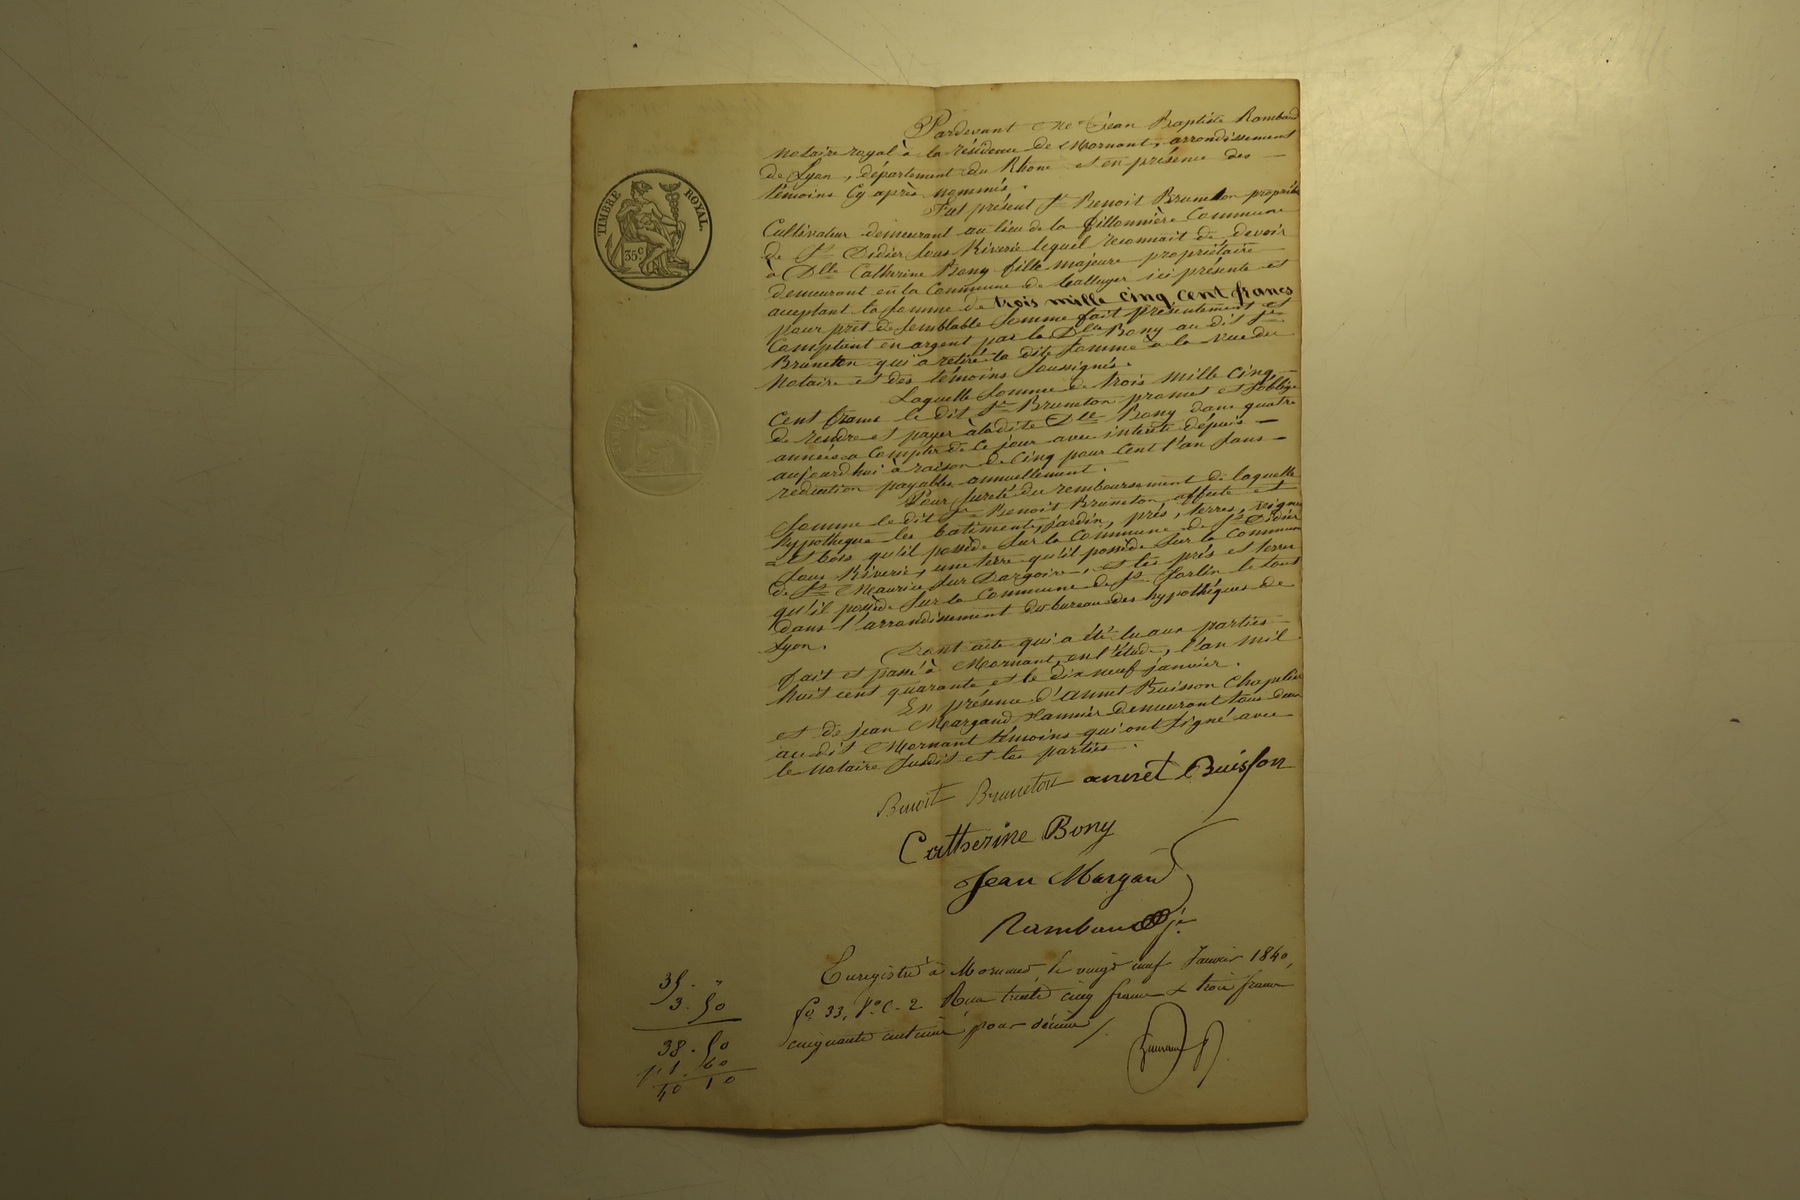 Pardevant Me Jean Baptiste Rambaud
Notaire royal à la résidence de Mornant, arrondissement
de Lyon, département du Rhone et en présence des
témoins cy après nommés.
Fut présent Sr Benoit Bruneton propriétre
Cultivateur demeurant au lieu de la fillonnière Commune
de St Didier Sous Riverie lequel reconnait de devoir
à Dlle Catherine Bony fille majeure propriétaire
demeurant en la Commune de ici présente et
acceptant la Somme de trois mille cinq cent francs
pour prêt de Semblable Somme fait présentement et
Comptant en argent par la Dlle Bony au dit Sr
Bruneton qui a retiré la dite Somme à la vue du
Notaire et des témoins Soussignés.
Laquelle Somme de trois mille cinq
cent francs le dit Sr Bruneton promet et s'oblige
de rendre et payer à la dite Dlle Bony dans quatre
années a compter de ce jour avec intérêts depuis
aujourd'hui à raison de cinq pour cent l'an Sans
réduction payable annuellement.
Pour Sureté du remboursement de laquelle
Somme le dit Sr Benoit Bruneton affecte et
hypothèque les batiments, jardin, prés, terres, vignes
et bois qu'il possède Sur la Commune de St Didier
Sous Riverie, une terre qu'il possède Sur la Commune
de St Maurice Sur Dargoire, et les prés et terres
qu'il possède Sur la Commune de St Sorlin le tout
dans l'arrondissement du bureau des hypothèques de
Lyon.
Dont acte qui a été lu aux parties
fait et passé à Mornant, en l'étude, l'an mil
huit cent quarante et le dix neuf janvier.
En présence d'annet Buisson Chapelier
et de jean Margaud demeurant tous deux
au dit Mornant témoins qui ont Signé avec
le notaire Susdit et les parties.
Benoit Bruneton annet Buisson
Catherine Bony
Jean Margaud
Rambaud je
Enregistré à Mornant, le vingt neuf Janvier 1840,
fo 33, Vo C. 2 Reçu trente cinq francs & trois francs
cinquante centimes pour décime
35. "
3. 50
38. 50
p. 1. 60
40 10
TIMBRE ROYAL.
35 C